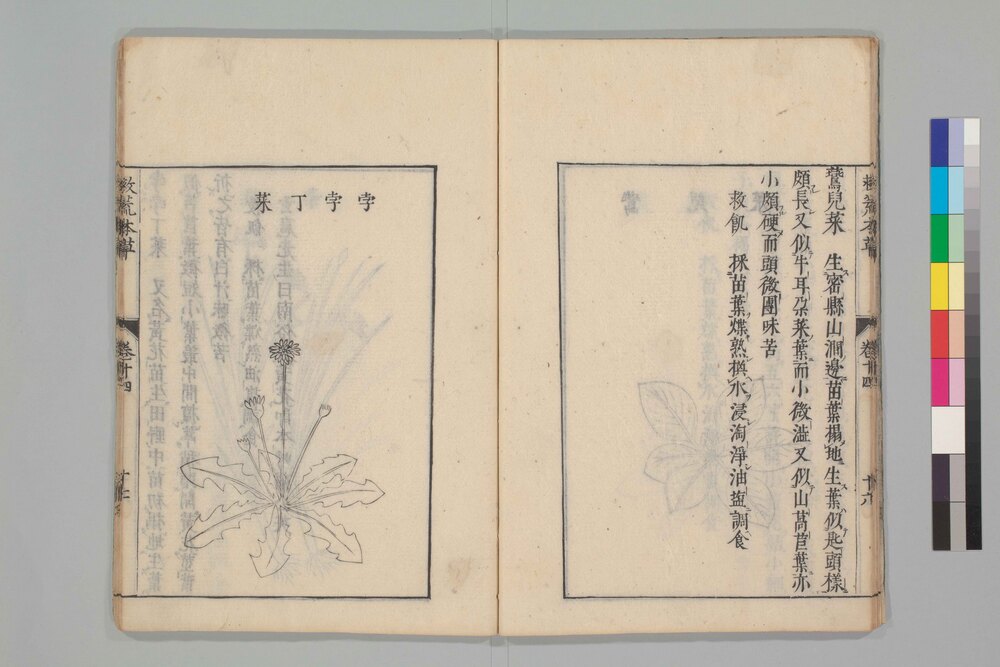 鵞兒菜 生密縣山澗邊苗葉搨地生葉似匙頭樣
頗長又似牛耳朵菜葉而小微澁又似山萵苣葉亦
小頗硬而頭微團味苦
救飢 採苗葉煠熟換水浸淘淨油鹽調食
卷十四
孛孛丁菜
救荒本草
卷十四